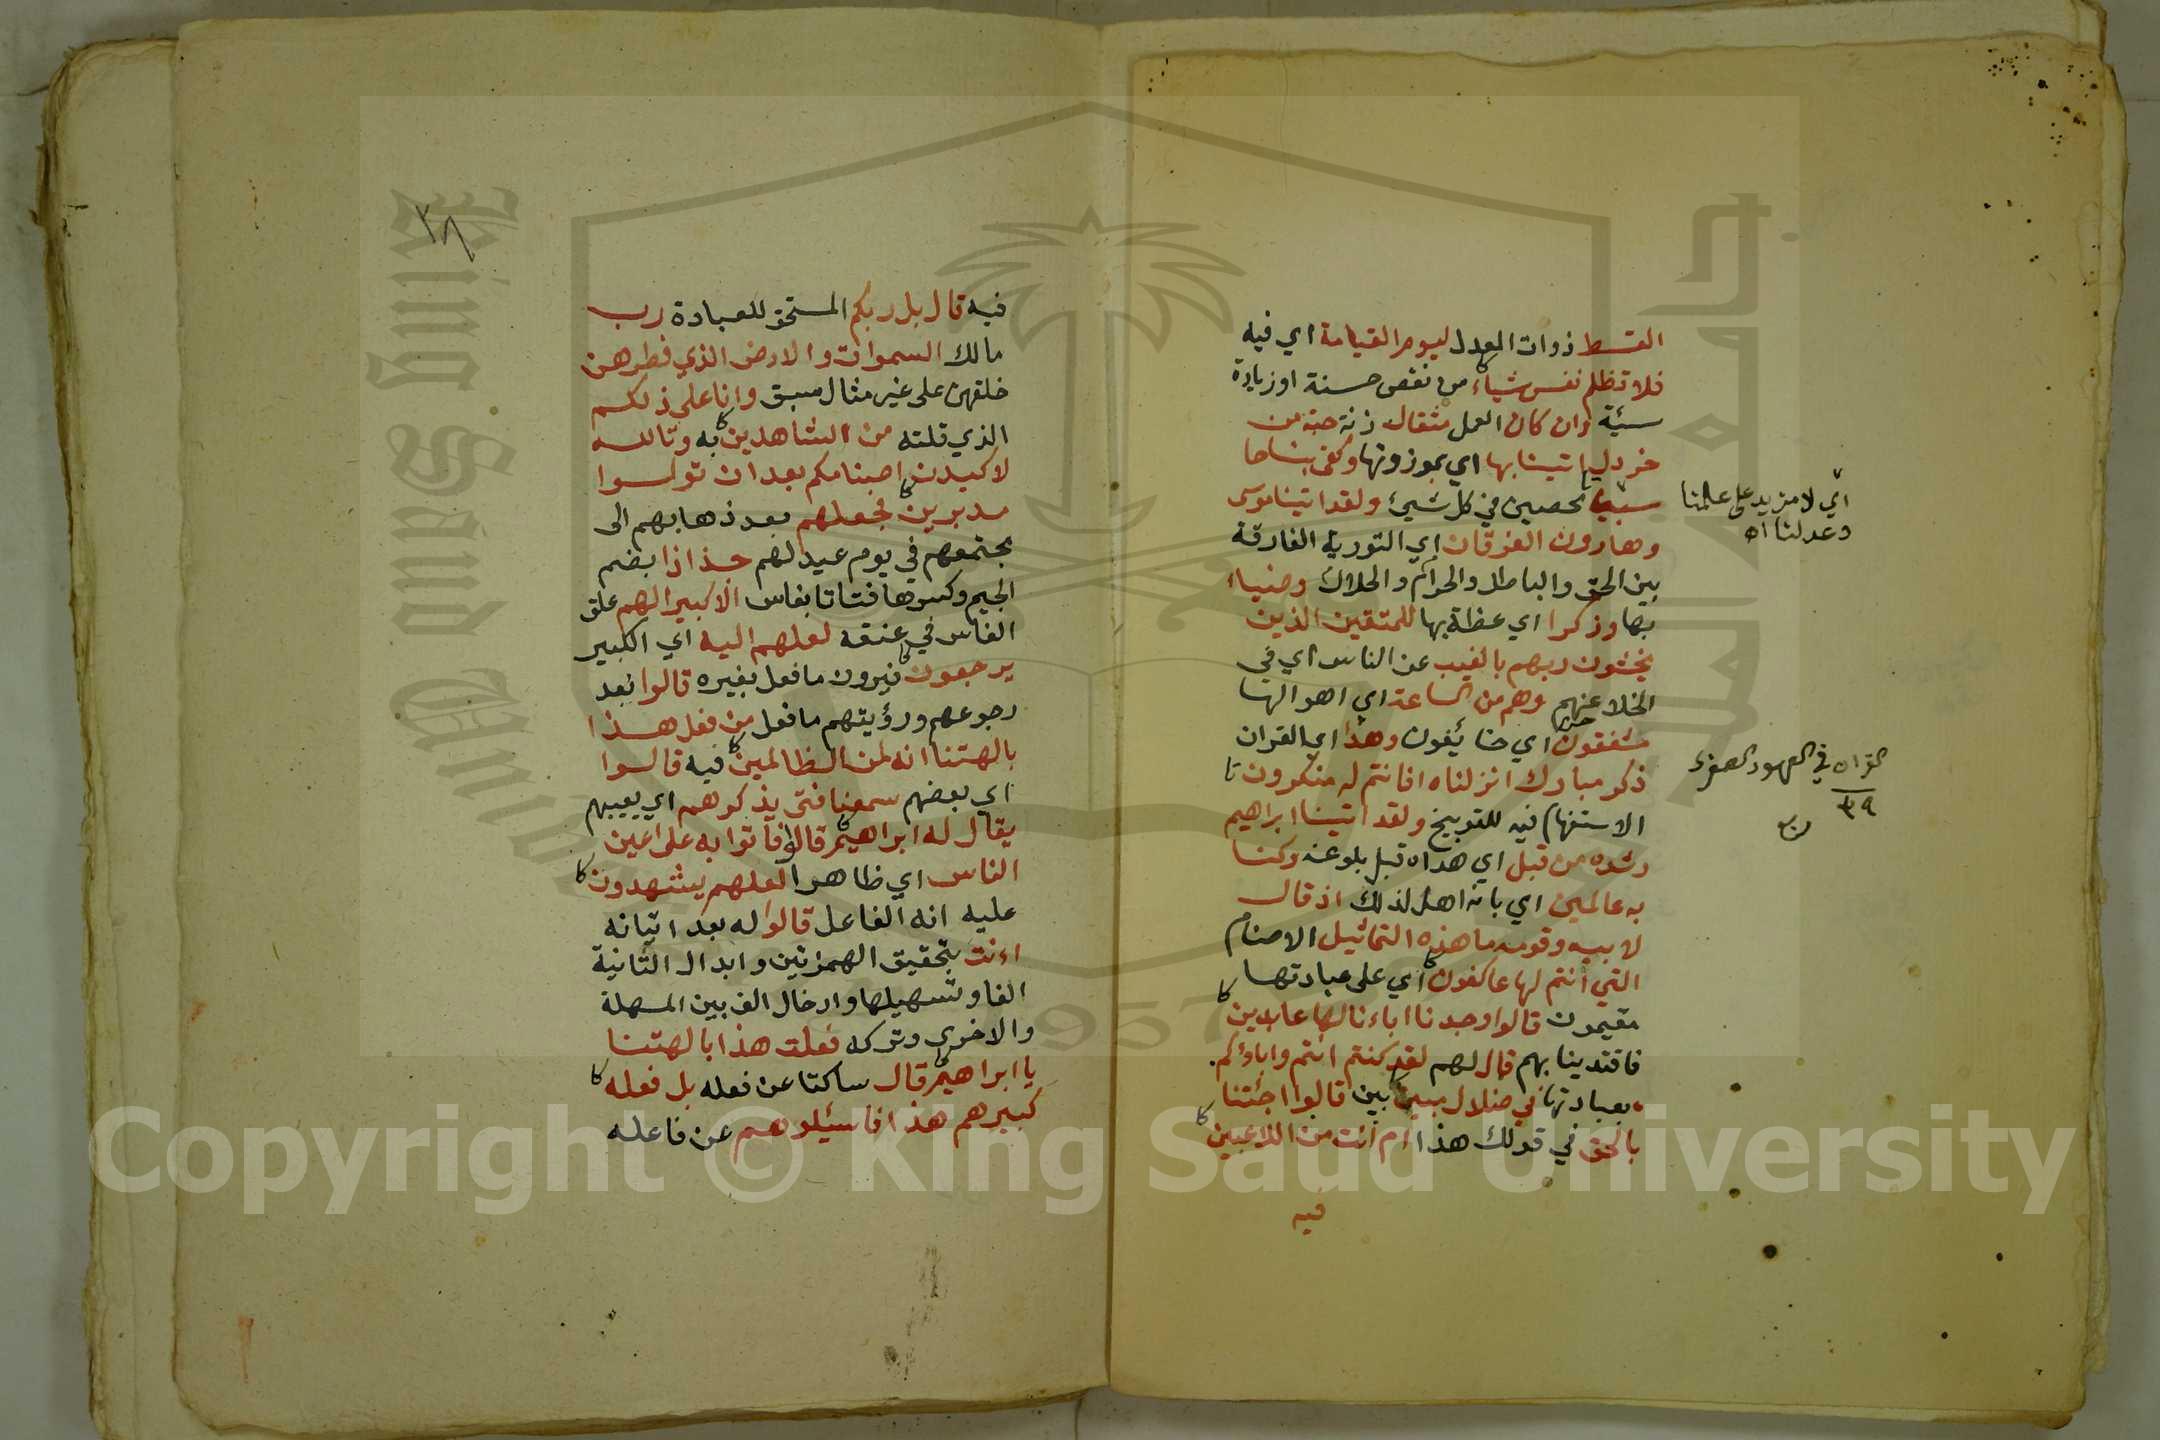 القسط ذوات العدل ليوم القيامة اي فيه
فلا تظلم نفس شياء من نقص حسنة او زيادة
سيئة وان كان العمل مثقال زنة حبة من
خردل اتينا بها اي بموزونها وكفى بنا حا
سبين محصين في كل شيئ ولقد اتينا موسى
وهارون الفرقان اي التورية الفارقة
بين الحق والباطل والحرام والحلال وضياء
بها وذكرا اي عظة بها للمتقين الذين
يخشون ربهم بالغيب عن الناس اي في
الخلا عنهم وهم من الساعة اي اهوالها
مشفقون اي خائفون وهذا اي القران
ذكر مبارك انزلناه افانتم له منكرون
الاستفهام فيه للتوبيخ ولقد اتينا ابراهيم
رشده من قبل اي هداه قبل بلوغه وكنا
به عالمين اي بانه اهل لذلك اذ قال
لابيه وقومه ما هذه التماثيل الاصنام
التي انتم لها عاكفون اي على عبادتها
مقيمون قالوا وجدنا اباءنا لها عابدين
فاقتدينا بهم قال لهم لقد كنتم انتم واباؤكم
بعبادتها في ضلال مبين بين قالوا اجئتنا
بالحق في قولك هذا ام انت من اللاعبين
فيه
اي لا مزيد على علمنا
وعدلنا اه
٣٨
فيه قال بل ربكم المستحق للعبادة رب
مالك السموات والارض الذي فطرهن
خلقهن على غير مثال سبق وانا على ذلكم
الذي قلته من الشاهدين به وتالله
لاكيدن اصنامكم بعد ان تولوا
مدبرين فجعلهم بعد ذهابهم الى
مجتمعهم في يوم عيد لهم جذاذا بضم
الجيم وكسرها فتاتا بفاس الا كبيرا لهم علق
الفاس في عنقه لعلهم اليه اي الكبير
يرجعون فيرون ما فعل بغيره قالوا بعد
رجوعهم ورؤيتهم ما فعل من فعل هذا
بالهتنا انه لمن الظالمين فيه قالوا
اي بعضهم سمعنا فتى يذكرهم اي يعيبهم
يقال له ابراهيم قالوا فاتوا به على اعين
الناس اي ظاهرا لعلهم يشهدون
عليه انه الفاعل قالوا له بعد اتيانه
اءنت بتحقيق الهمزتين وابدال الثانية
الفا وتسهيلها وادخال الف بين المسهلة
والاخرى وتركه فعلت هذا بالهتنا
يا ابراهيم قال ساكتا عن فعله بل فعله
كبيرهم هذا فاسئلوهم عن فاعله
Copyright © King Saud University